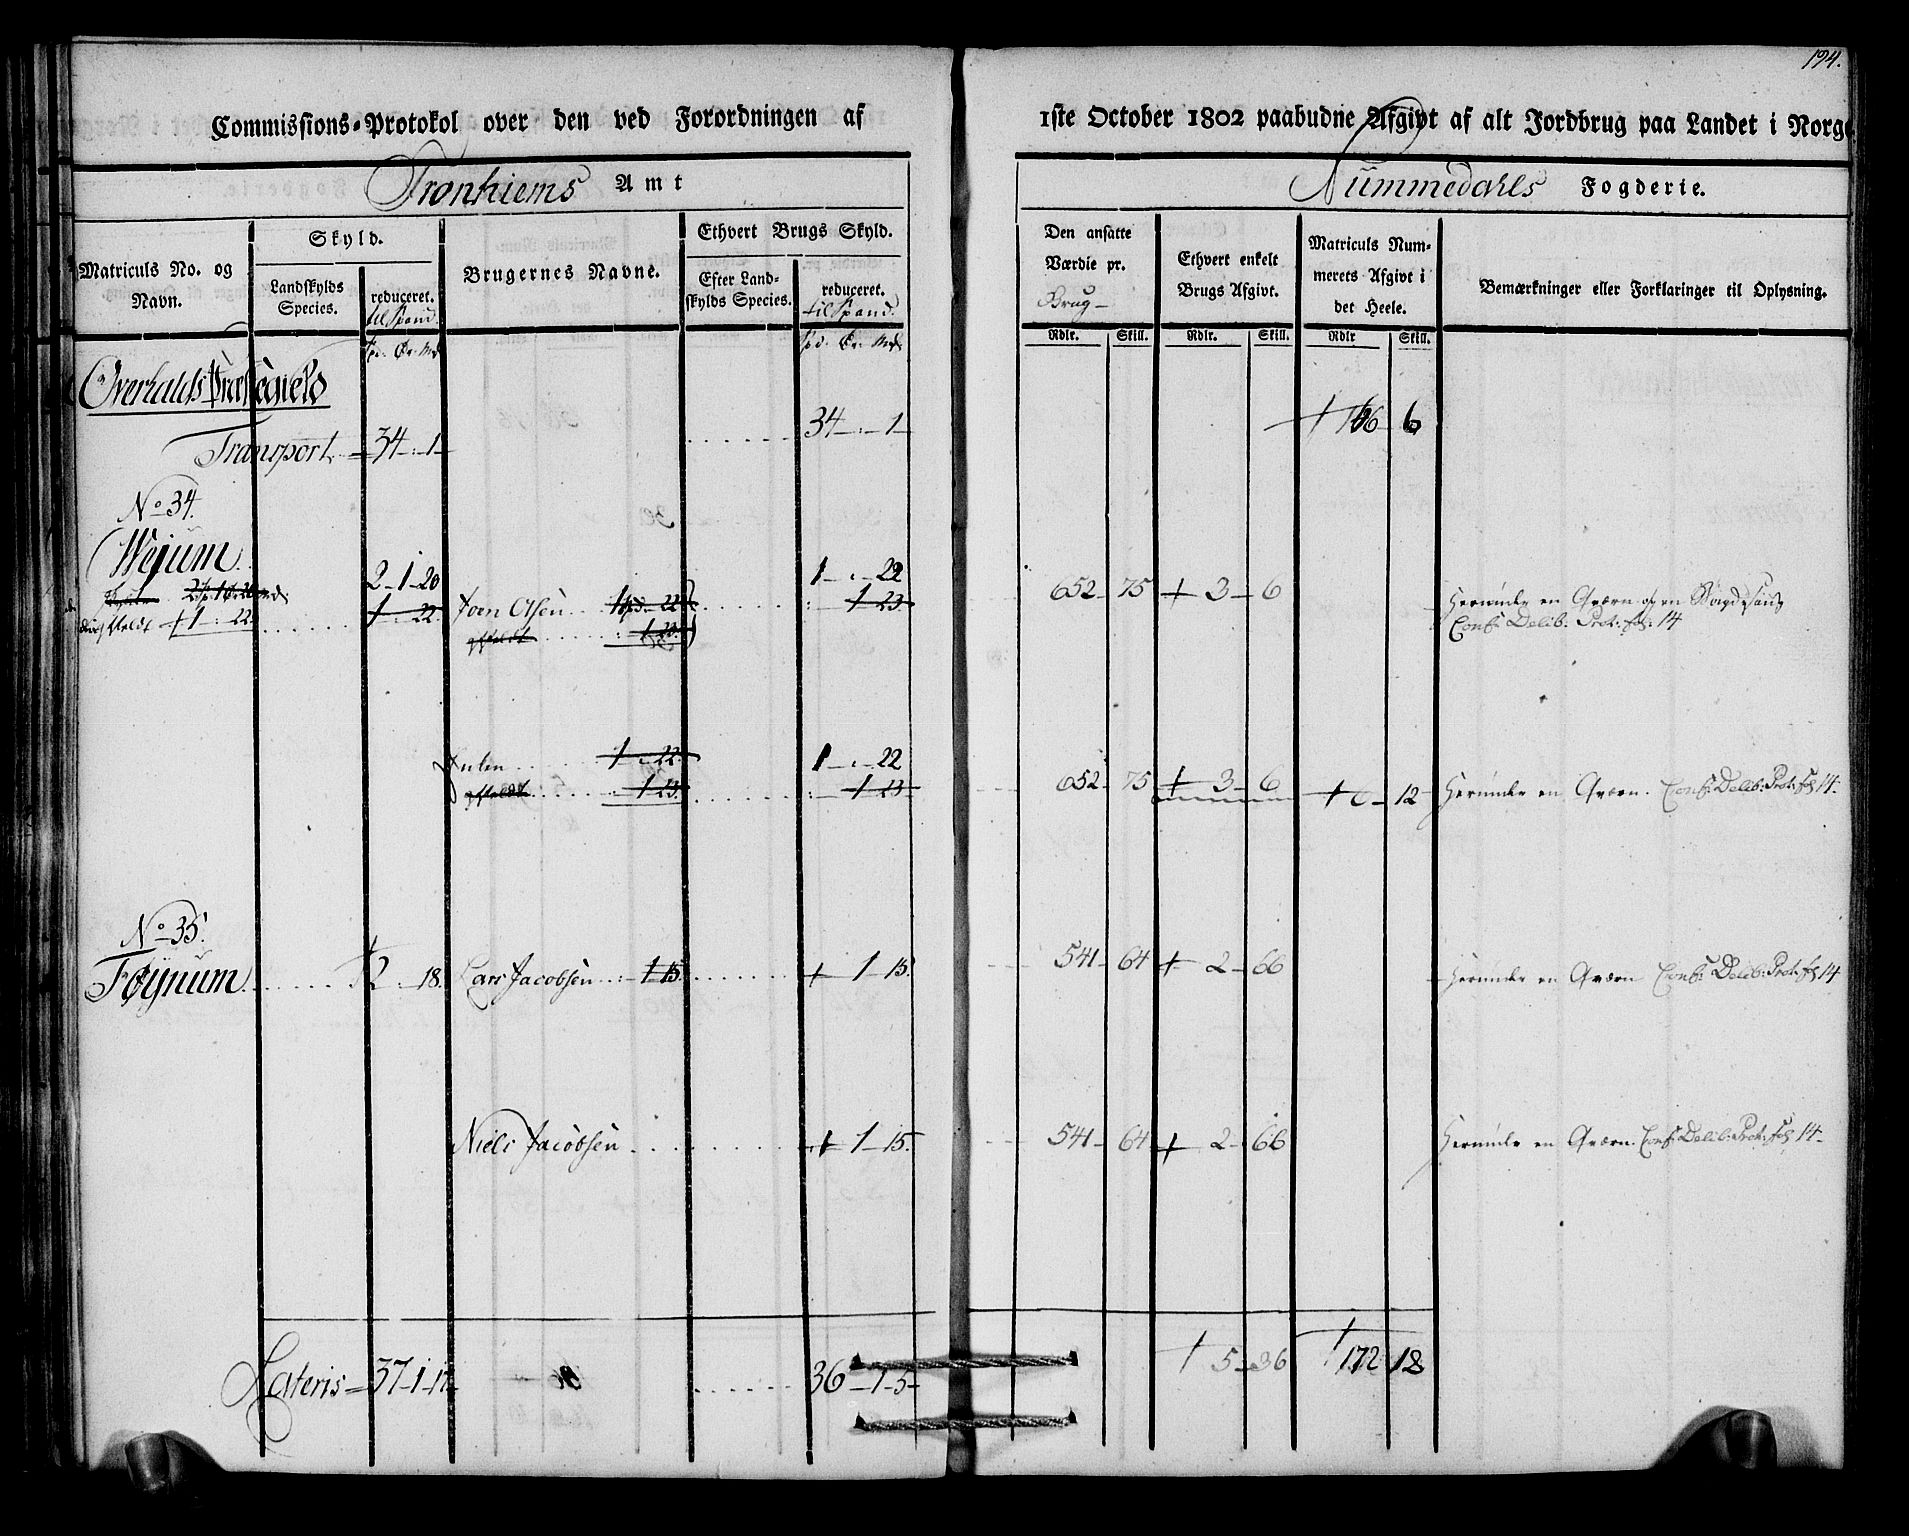 194.
Commissions-Protokol over den ved Forordningen af 1ste October 1802 paabudne Afgivt af alt Jordbrug paa Landet i Norge
Tronhiems Amt
Nummedahls Fogderie.
Matriculs No. og Navn.
Skyld.
Landskylds Species.
reduceret.
til Spand.
Brugernes Navne.
Ethvert Brugs Skyld.
Efter Landskylds Species.
reduceret.
til Spand.
Den ansatte Værdie pr.
Brug
Ethvert enkelt Brugs Afgivt.
Matriculs Nummerets Afgivt i det Heele.
Bemærkninger eller Forklaringer til Oplysning.
Rdlr. Skill. Rdlr. Skill. Rdlr Skill.
Spd. Ør. Mk
Spd. Ør. Mk
Overhalds Præstegield
Transport 34 - 1 34 - 1 166 6
No 34.
Wejum
2 - 1 - 20 1 - 22 652 - 75 3 - 6
1 - 22 Joen Olsen 1 22 1 23
1 23
Herunder en Qværn og en Bøygdesaug
Conf: Delib: Prot: fol: 14
Enken 1 - 22 1 - 22
1 - 23 1 - 23
652 75 3 - 6 6 - 12 Herunder en Qværn. Conf: Delib: Prot: fol 14.
No 35.
Føÿnum 2 . 18. Lars Jacobsen 1 15 1 - 15. 541 - 64 2 - 66 Herunder en Qværn Conf: Delib: Prot: fol 14
Niels Jacobsen 1 - 15. 541 - 64 2 - 66 Herunder en Qværn. Conf: Delib: Prot: fol 14
Lateris 37 - 1 - 17 36 - 1 - 5 5 - 36 172 18